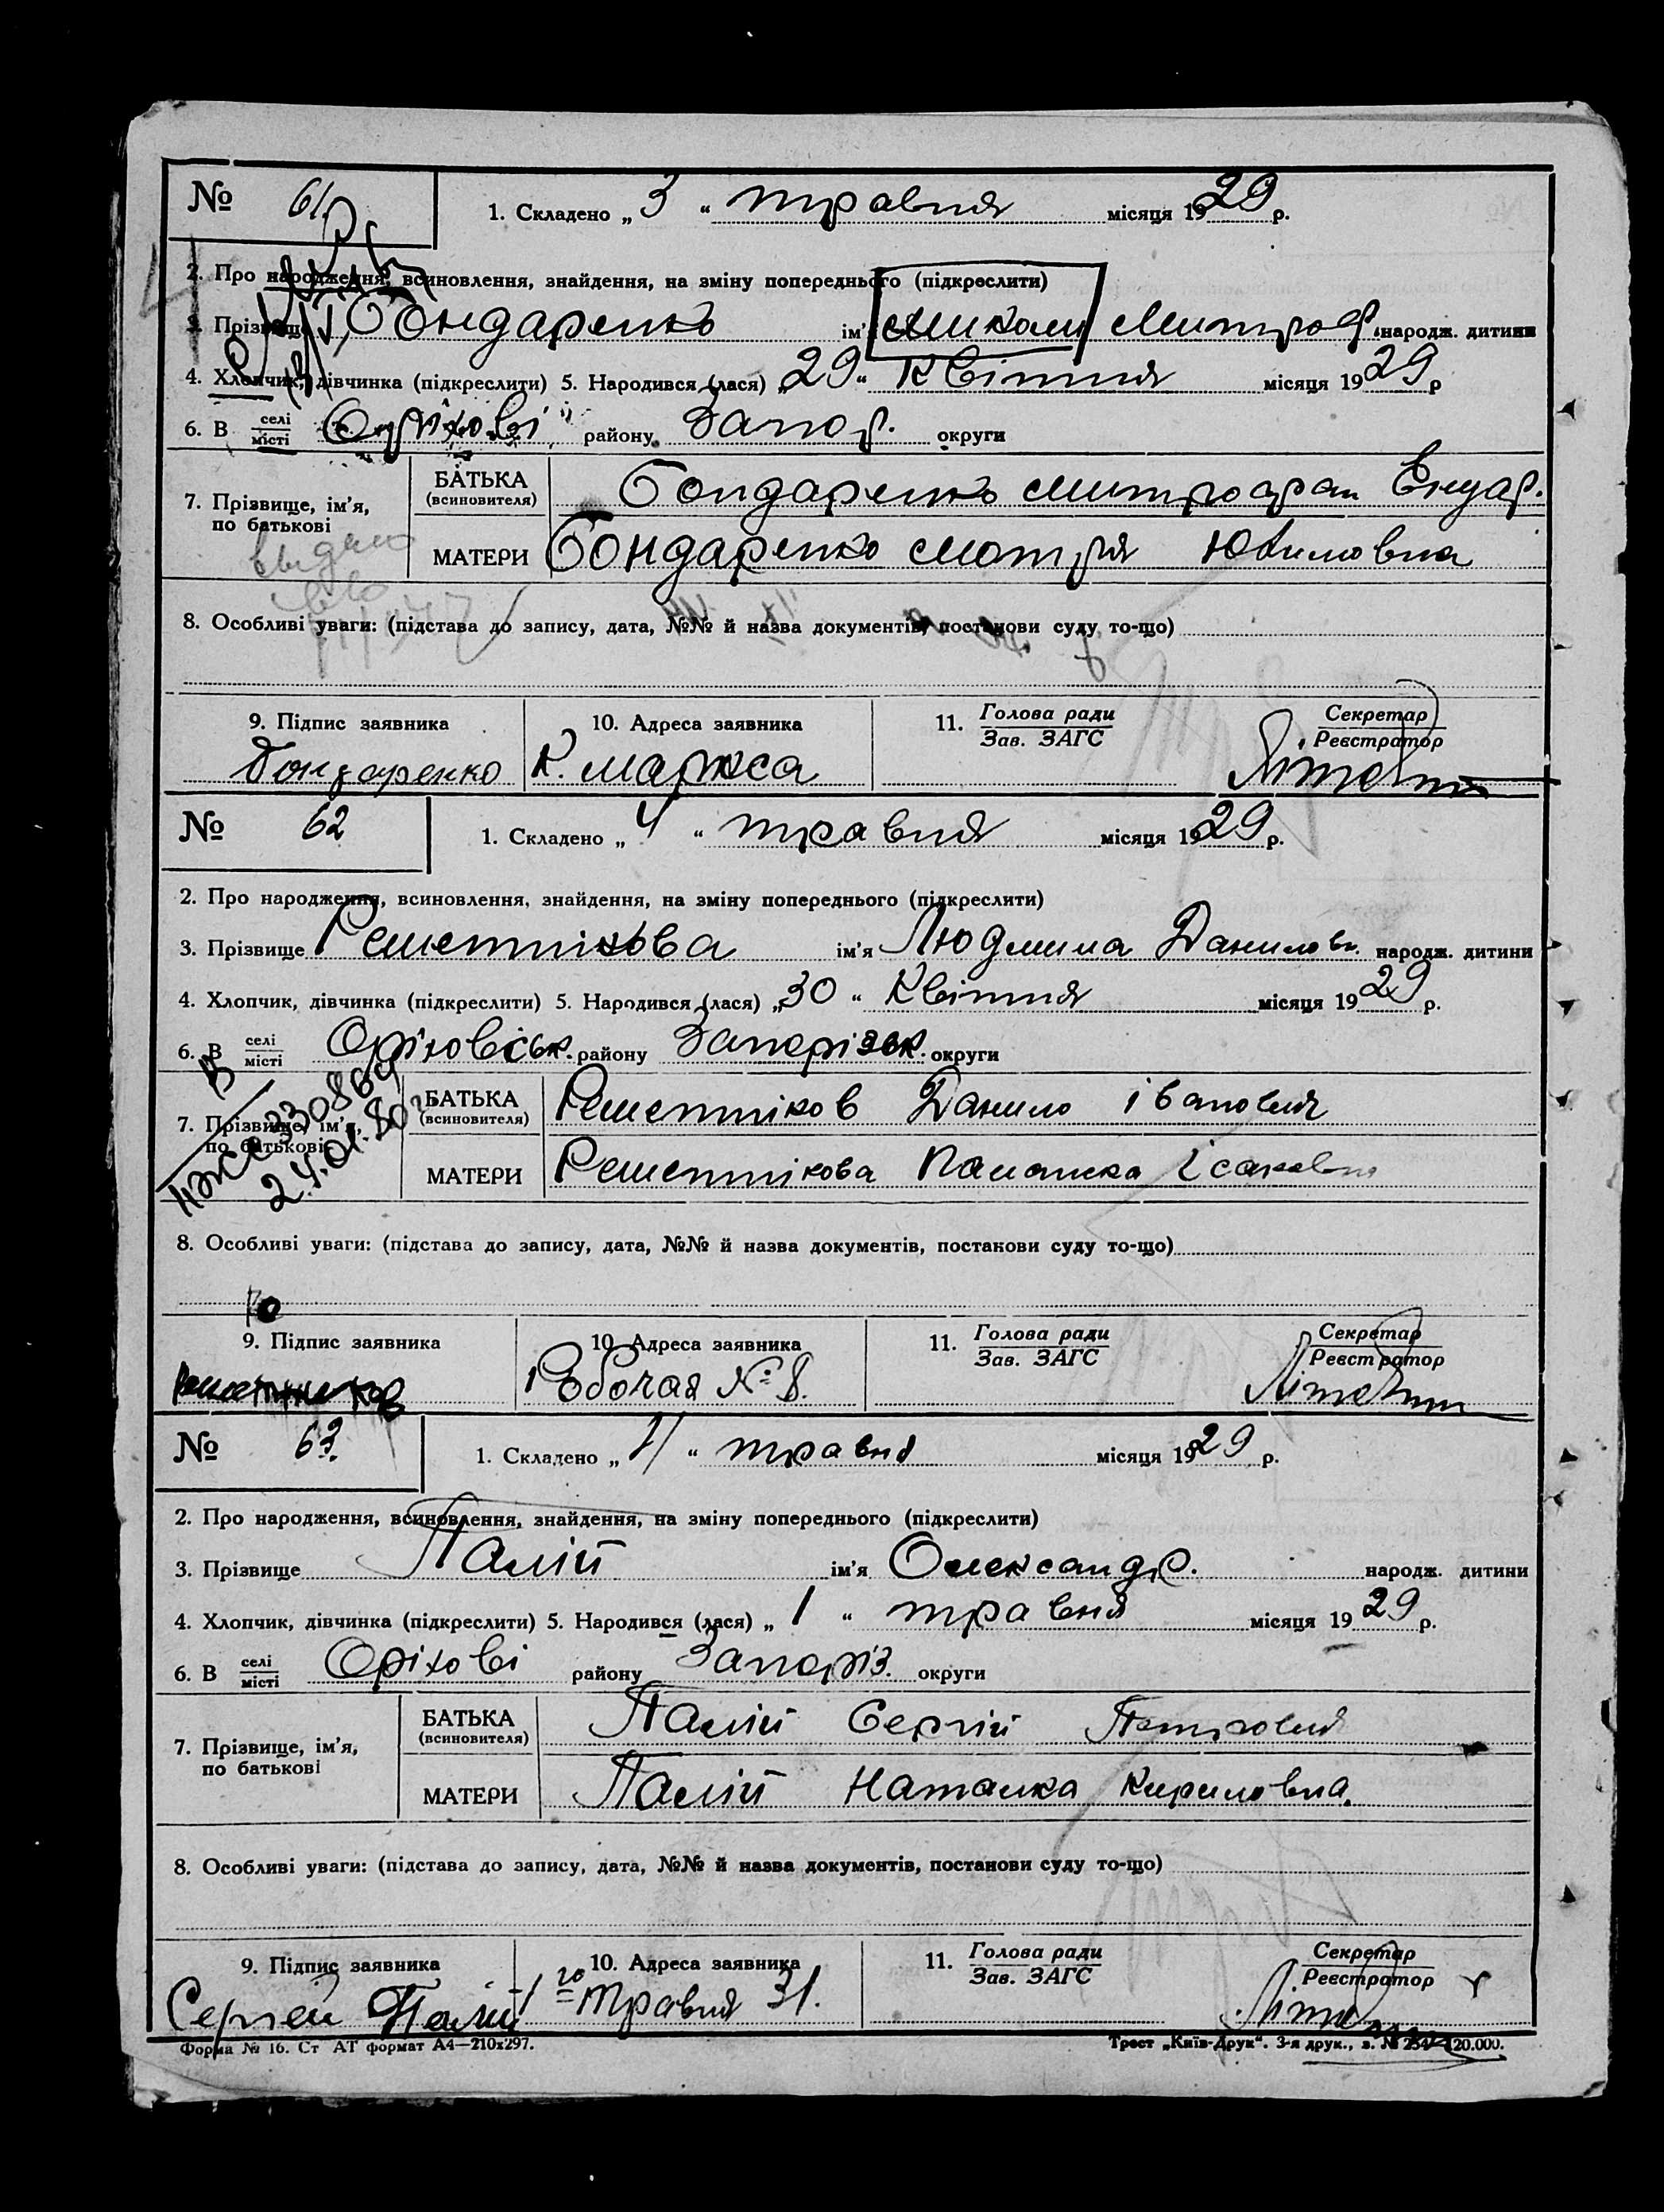 № 61 1. Складено „3“ травня місяця 1929 р.
2. Про народження, всиновлення, знайдення, на зміну попереднього (підкреслити)
3. Прізвище Бондаренко ім'я Микола Митроф. народж. дитини
4. Хлопчик, дівчинка (підкреслити) 5. Народився (лася) „29“ Квітня місяця 1929 р
6. В селі місті Оріхові району Запор. округи
7. Прізвище, ім'я, по батькові
БАТЬКА (всиновителя) Бондаренко Митрофан
МАТЕРИ Бондаренко Мотря Юхимовна
8. Особливі уваги: (підстава до запису, дата, №№ й назва документів, постанови суду то-що)
9. Підпис заявника 10. Адреса заявника 11. Голова ради Зав. ЗАГС Секретар Реєстратор
Бондаренко К. Маркса
№ 62 1. Складено „4“ травня місяця 1929 р.
2. Про народження, всиновлення, знайдення, на зміну попереднього (підкреслити)
3. Прізвище Решетнікова ім'я Людмила Даниловн. народж. дитини
4. Хлопчик, дівчинка (підкреслити) 5. Народився (лася) „30“ Квітня місяця 1929 р.
6. В селі місті Оріховськ. району Запорізьк. округи
7. Прізвище, ім'я, по батькові
БАТЬКА (всиновителя) Решетніков Данило Іванович
МАТЕРИ Решетнікова Палажка Ісаковна
24.01.80
8. Особливі уваги: (підстава до запису, дата, №№ й назва документів, постанови суду то-що)
9. Підпис заявника 10. Адреса заявника 11. Голова ради Зав. ЗАГС Секретар Реєстратор
Решетников Рабочая № 8.
№ 63. 1. Складено „4“ травня місяця 1929 р.
2. Про народження, всиновлення, знайдення, на зміну попереднього (підкреслити)
3. Прізвище Палій ім'я Олександр. народж. дитини
4. Хлопчик, дівчинка (підкреслити) 5. Народився (лася) „1“ травня місяця 1929 р.
6. В селі місті Оріхові району Запоріз. округи
7. Прізвище, ім'я, по батькові
БАТЬКА (всиновителя) Палій Сергій Петрович
МАТЕРИ Палій Наталка Кириловна.
8. Особливі уваги: (підстава до запису, дата, №№ й назва документів, постанови суду то-що)
9. Підпис заявника 10. Адреса заявника 11. Голова ради Зав. ЗАГС Секретар Реєстратор
Сергей Палий 1го Травня 31.
Форма № 16. Ст АТ формат А4—210х297. Трест „Київ-Друк“. 3-я друк., з. № 254 120.000.